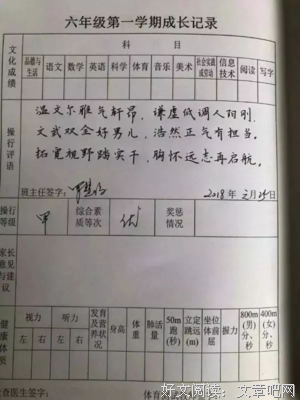 六年级第一学期成长记录
文化成绩
科 目
品德与生活 语文 数学 英语 科学 体育 音乐 美术 社会实践或劳动 信息技术 阅读 写字
操行评语
温文尔雅气轩昂，谦虚低调人阳刚。
文武双全好男儿，浩然正气有担当。
拓宽视野踏实干，胸怀远志再启航。
班主任签字：
2018年 月25日
操行等级 甲 综合素质等次 优 奖惩情况
家长意见与建议
健康体质
视力 听力 发育及营养状况 身高 体重 肺活量 50m跑(秒) 立定跳远(m) 坐位体前屈 握力 800m(男)分、秒 400m(女)分、秒
左 右 左 右
查医生签字：
好文阅读：文章吧网